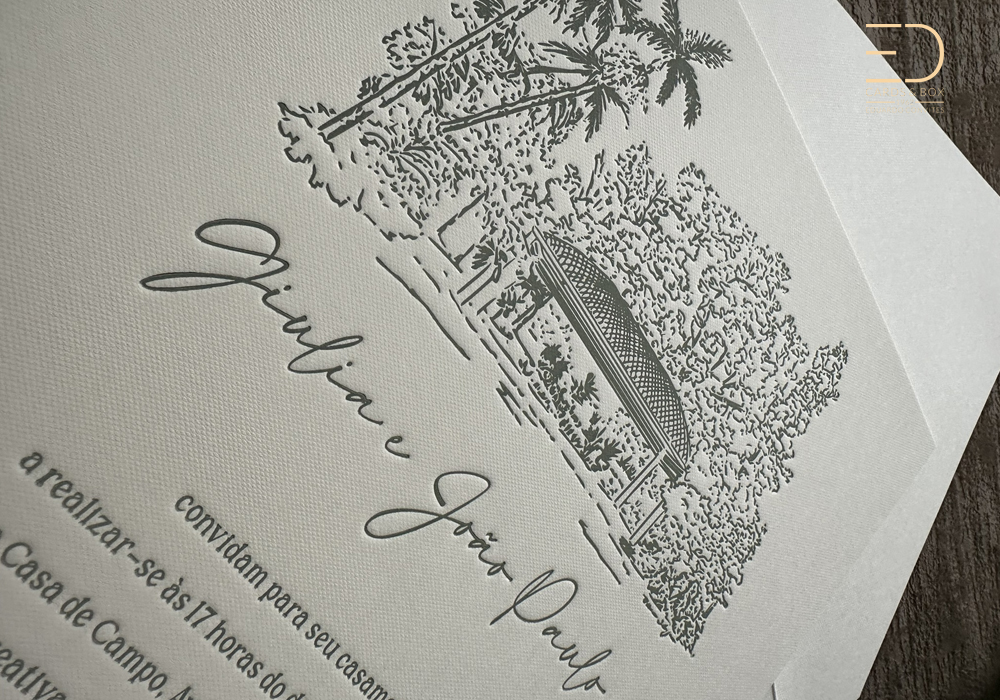 Giulia e João Paulo
convidam para seu casam
a realizar-se às 17 horas do d
Casa de Campo, Av
eativa
ED
BOX